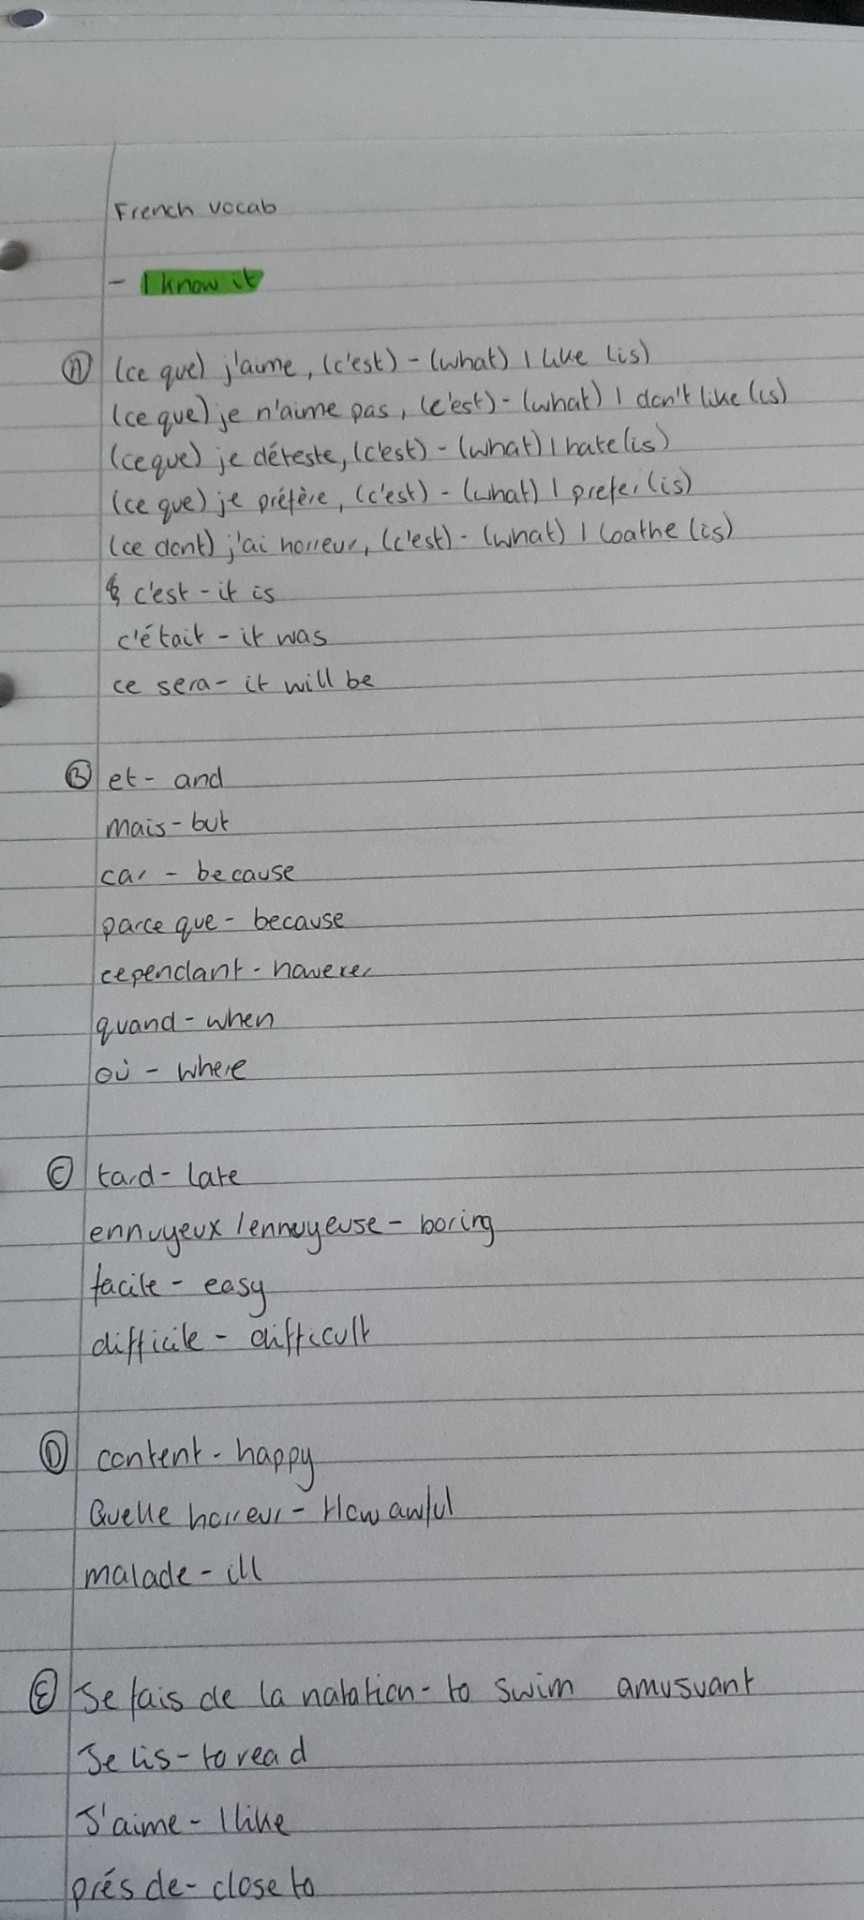 French vocab
- I know it
Ⓐ (ce que) j'aime, (c'est) - (what) I like (is)
(ce que) je n'aime pas, (c'est) - (what) I don't like (is)
(ce que) je déteste, (c'est) - (what) I hate (is)
(ce que) je préfère, (c'est) - (what) I prefer (is)
(ce dont) j'ai horreur, (c'est) - (what) I loathe (is)
c'est - it is
c'était - it was
ce sera - it will be
Ⓑ et - and
mais - but
car - because
parce que - because
cependant - however
quand - when
où - where
Ⓒ tard - late
ennuyeux / ennuyeuse - boring
facile - easy
difficile - difficult
Ⓓ content - happy
Quelle horreur - How awful
malade - ill
Ⓔ Je fais de la natation - to swim amusuant
Je lis - to read
J'aime - I like
prés de - close to